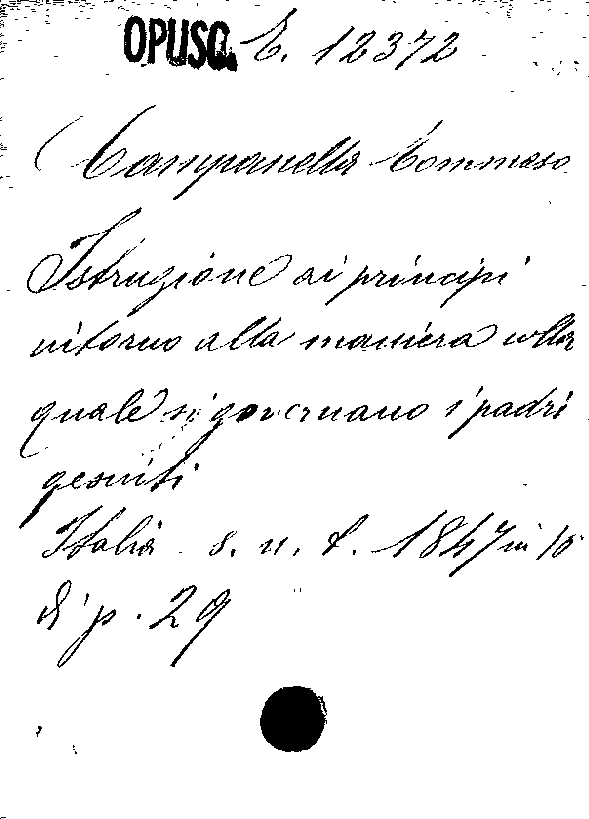 OPUSC. E. 12372
Campanella Tommaso
Istruzione ai principi
intorno alla maniera colla
quale si governano i padri
gesuiti
Italia s. n. t. 1847 in 16°
di p. 29